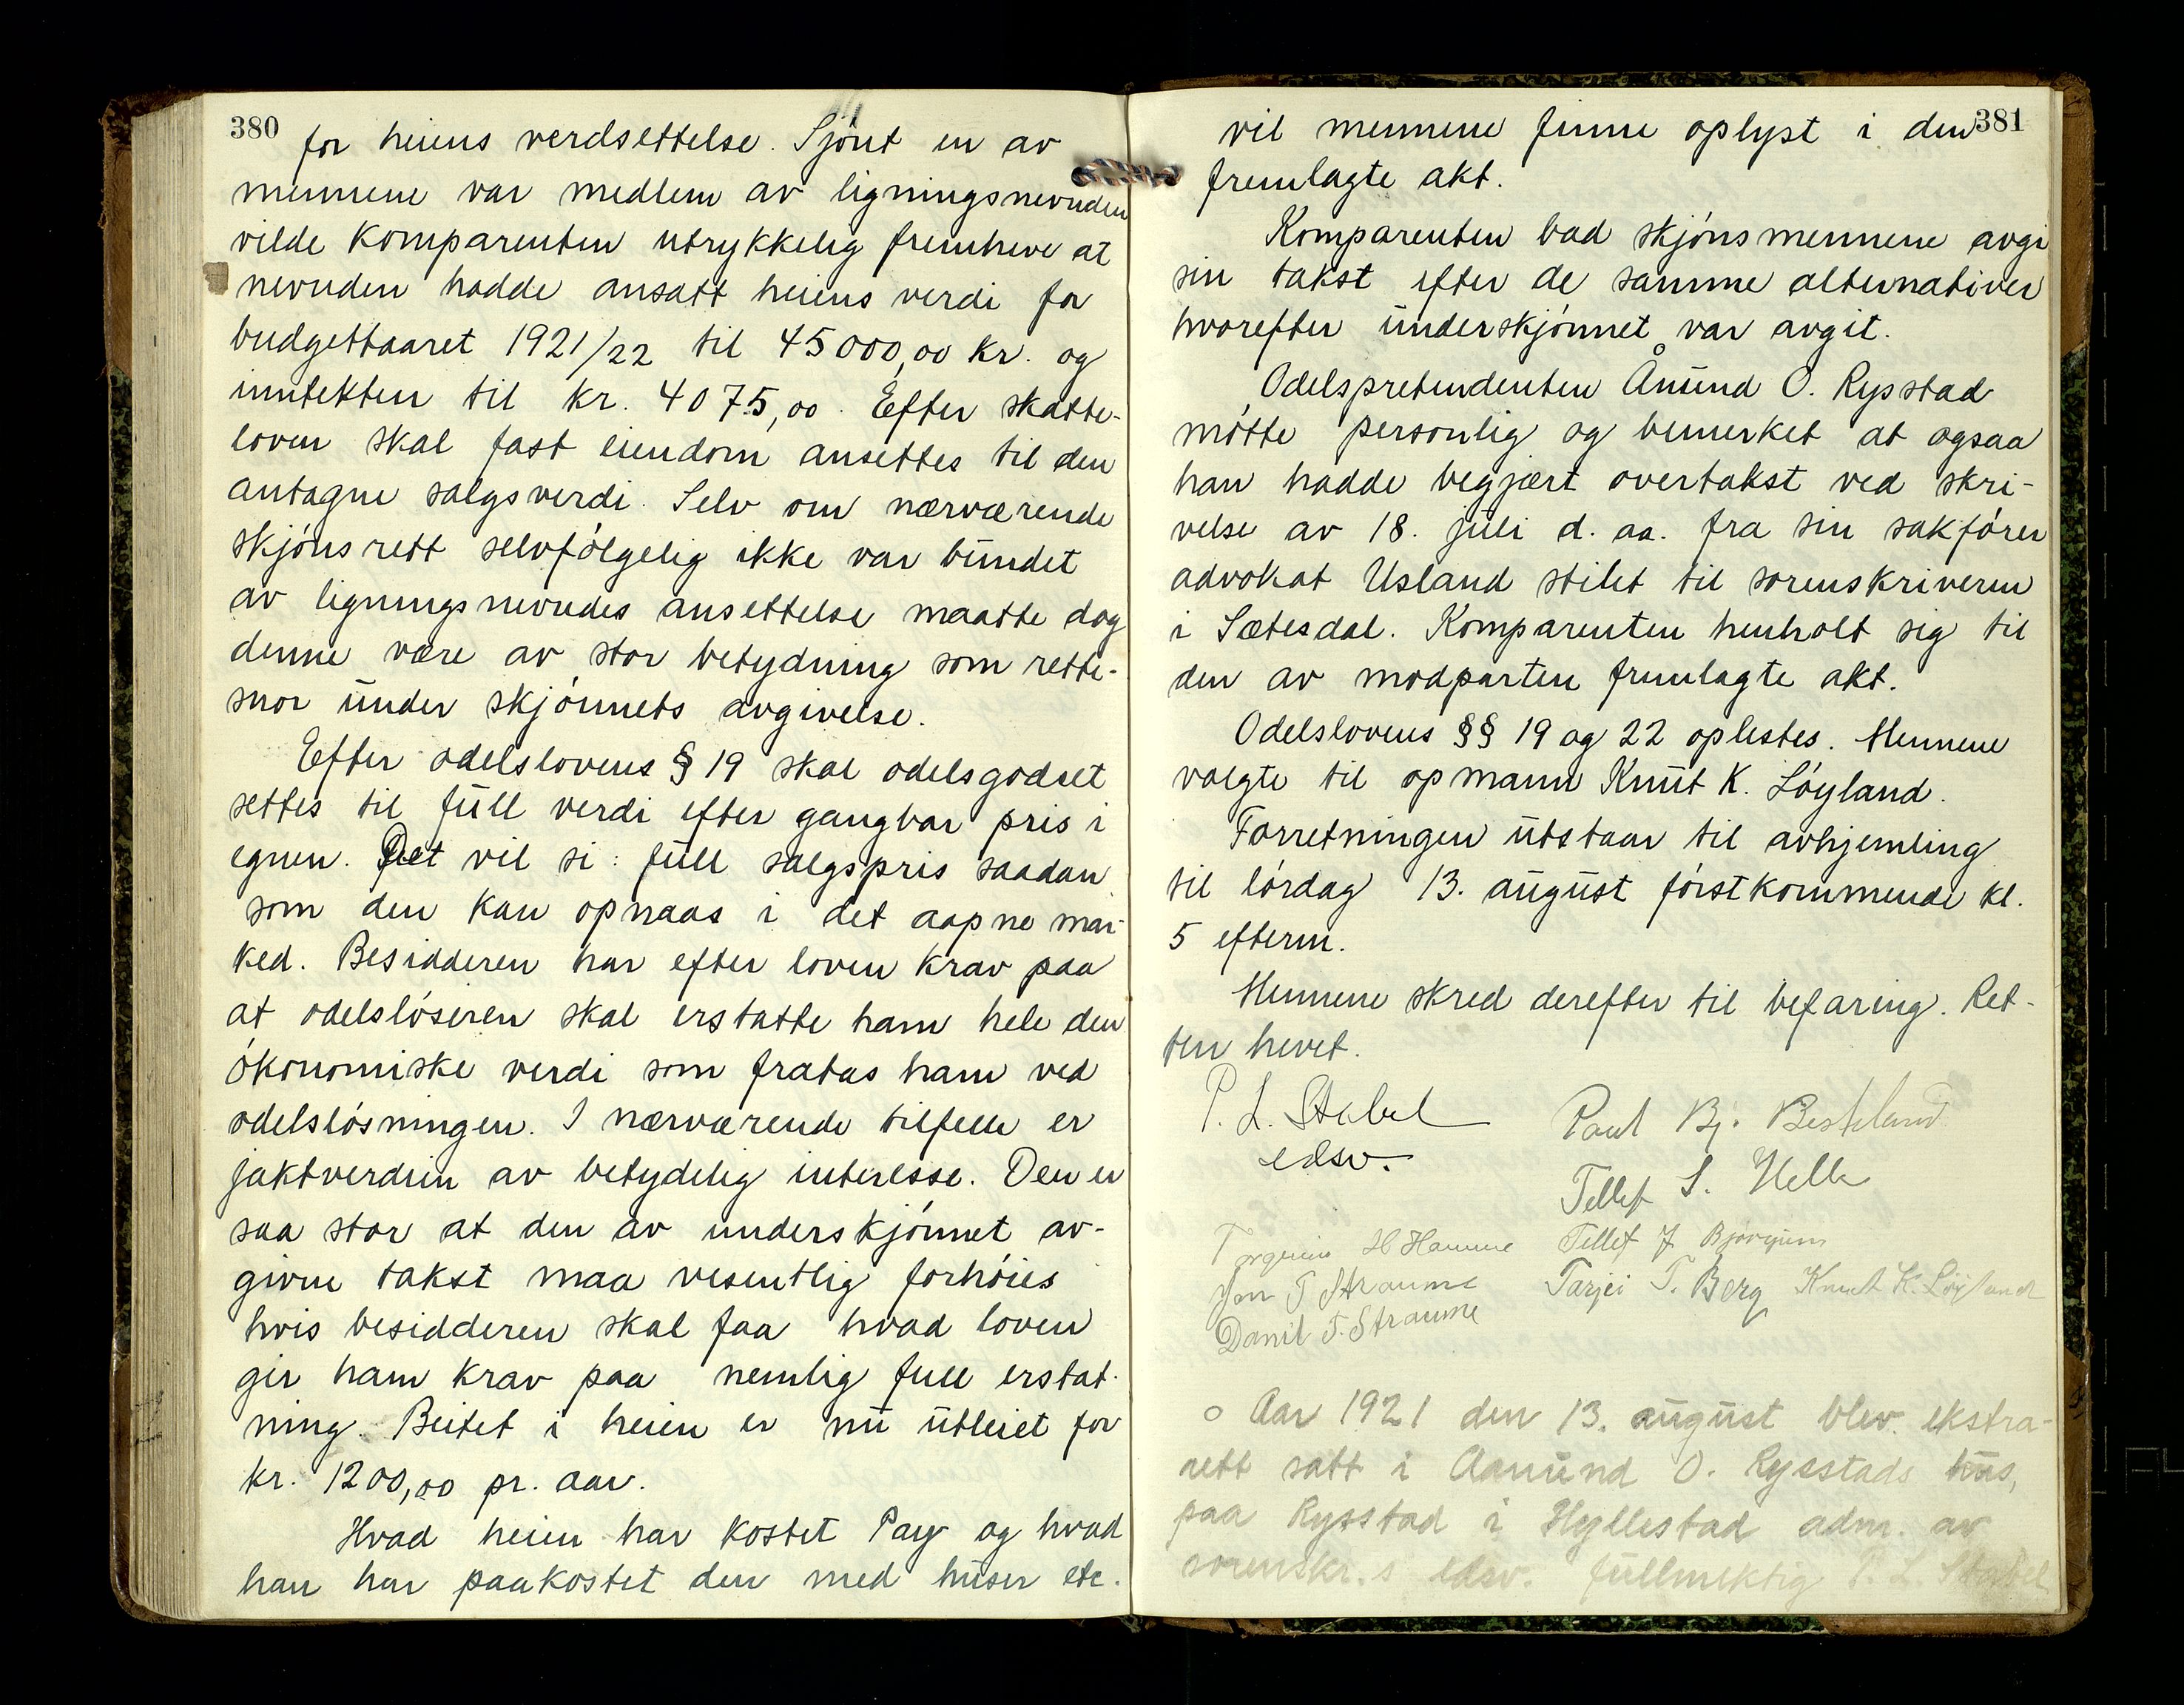 380
for heiens verdsettelse. Sjønt en av
mennene var medlem av ligningsnevnden
vilde komparenten utrykkelig fremheve at
nevnden hadde ansatt heiens verdi for
budgettaaret 1921/22 til 45000,00 kr. og
inntekten til kr. 4075,00. Efter skatte-
loven skal fast eiendom ansettes til den
antagne salgsverdi. Selv om nærværende
skjønsrett selvfølgelig ikke var bundet
av ligningsnevndes ansettelse maatte dog
denne være av stor betydning som rette-
snor under skjønnets avgivelse.
Efter odelslovens § 19 skal odelsgodset
settes til full verdi efter gangbar pris i
egnen. Det vil si: full salgspris saadan
som den kan opnaas i det aapne mar-
ked. Besidderen har efter loven krav paa
at odelsløseren skal erstatte ham hele den
økonomiske verdi som fratas ham ved
odelsløsningen. I nærværende tilfelle er
jaktverdien av betydelig interesse. Den er
saa stor at den av underskjønnet av-
givne takst maa vesentlig forhøies
hvis besidderen skal faa hvad loven
gir ham krav paa nemlig full erstat-
ning. Beitet i heien er nu utleiet for
kr. 1200,00 pr. aar.
Hvad heien har kostet Pay og hvad
han har paakostet den med huser etc.
381
vil mennene finne oplyst i den
fremlagte akt.
Komparenten bad skjønsmennene avgi
sin takst efter de samme alternativer
hvorefter underskjønnet var avgit.
Odelspretendenten Ånund O. Rysstad
møtte personlig og bemerket at ogsaa
han hadde begjært overtakst ved skri-
velse av 18. juli d. aa. fra sin sakfører
advokat Usland stilet til sorenskriveren
i Sætesdal. Komparenten henholt sig til
den av modparten fremlagte akt.
Odelslovens §§ 19 og 22 oplestes. Mennene
valgte til opmann Knut K. Løyland.
Forretningen utstaar til avhjemling
til lørdag 13. august førstkommende kl.
5 efterm.
Mennene skred derefter til befaring. Ret-
ten hevet.
P. L. Stabel
edsv.
Paul Bj. Besteland
Tellef S. Helle
Torgeius H Hamme Tellef J Bjørgum
Jon T Straume Tarjei T. Berg Knut K. Løyland
Danil T. Straume
o Aar 1921 den 13. august blev ekstra-
rett satt i Aanund O. Rysstads hus,
paa Rysstad i Hyllestad adm. av
sorenskr.s edsv. fullmektig P. L. Stabel